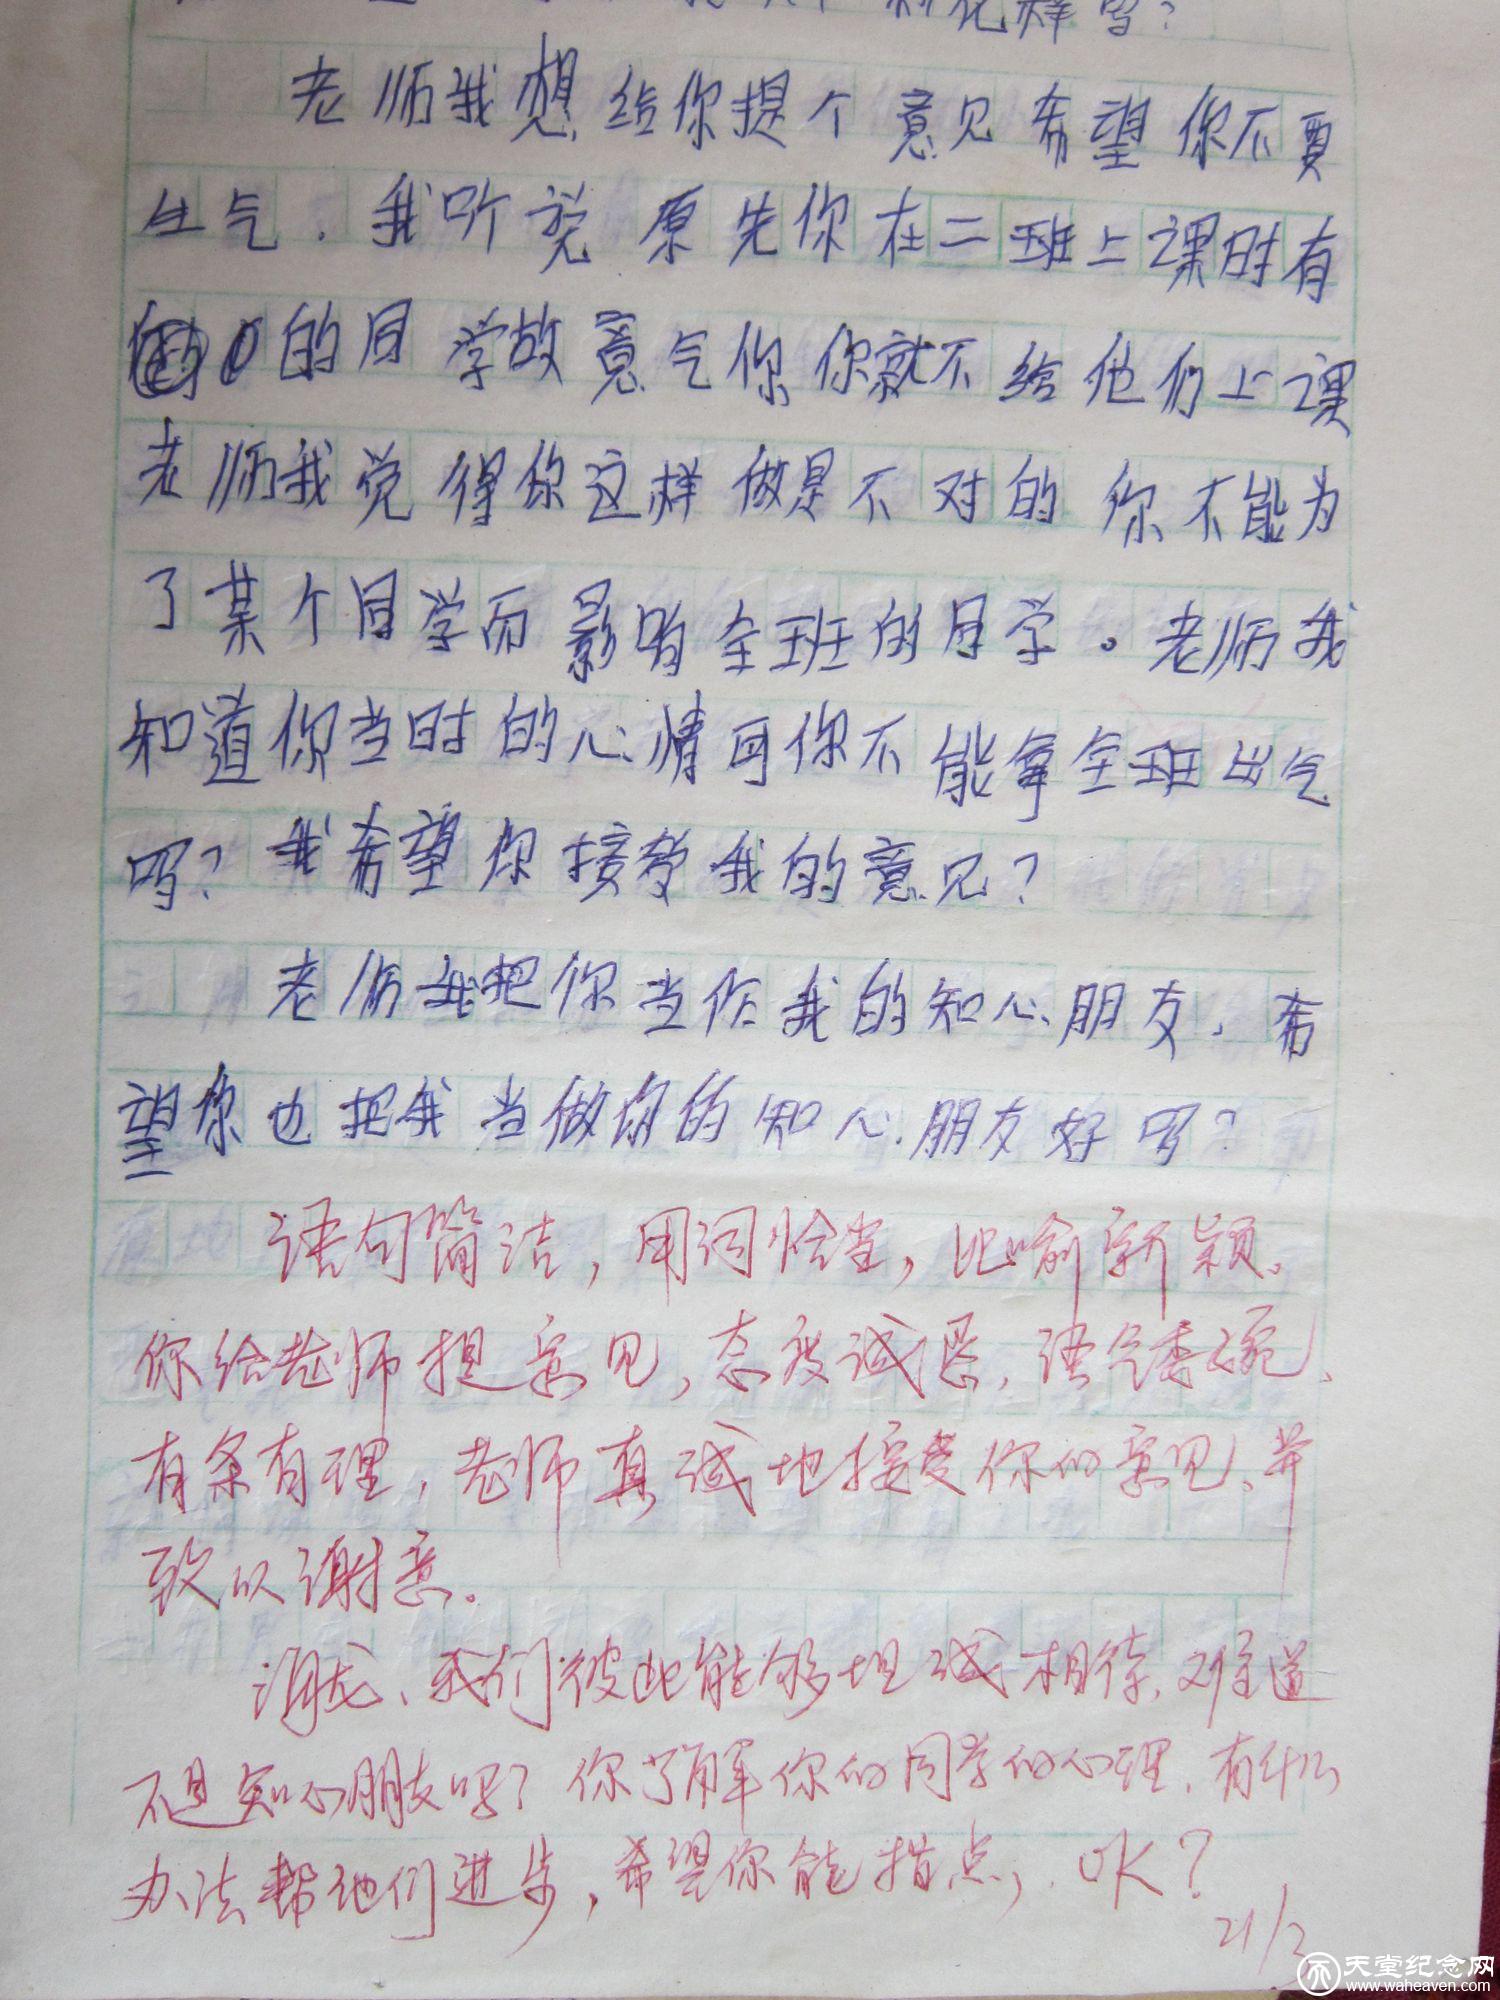 新花样吗？
老师我想给你提个意见希望你不要
生气．我听说原先你在二班上课时有
的同学故意气你你就不给他们上课
老师我觉得你这样做是不对的你不能为
了某个同学而影响全班的同学。老师我
知道你当时的心情可你不能拿全班出气
吗？我希望你接受我的意见？
老师我把你当作我的知心朋友，希
望你也把我当做你的知心朋友好吗？
语句简洁，用词恰当，比喻新颖。
你给老师提意见，态度诚恳，语气委婉、
有条有理，老师真诚地接受你的意见、并
致以谢意。
我们彼此能够坦诚相待，难道
不是知心朋友吗？你了解你的同学的心理，有什么
办法帮他们进步，希望你能指点，OK？
21/3
天堂纪念网
www.waheaven.com